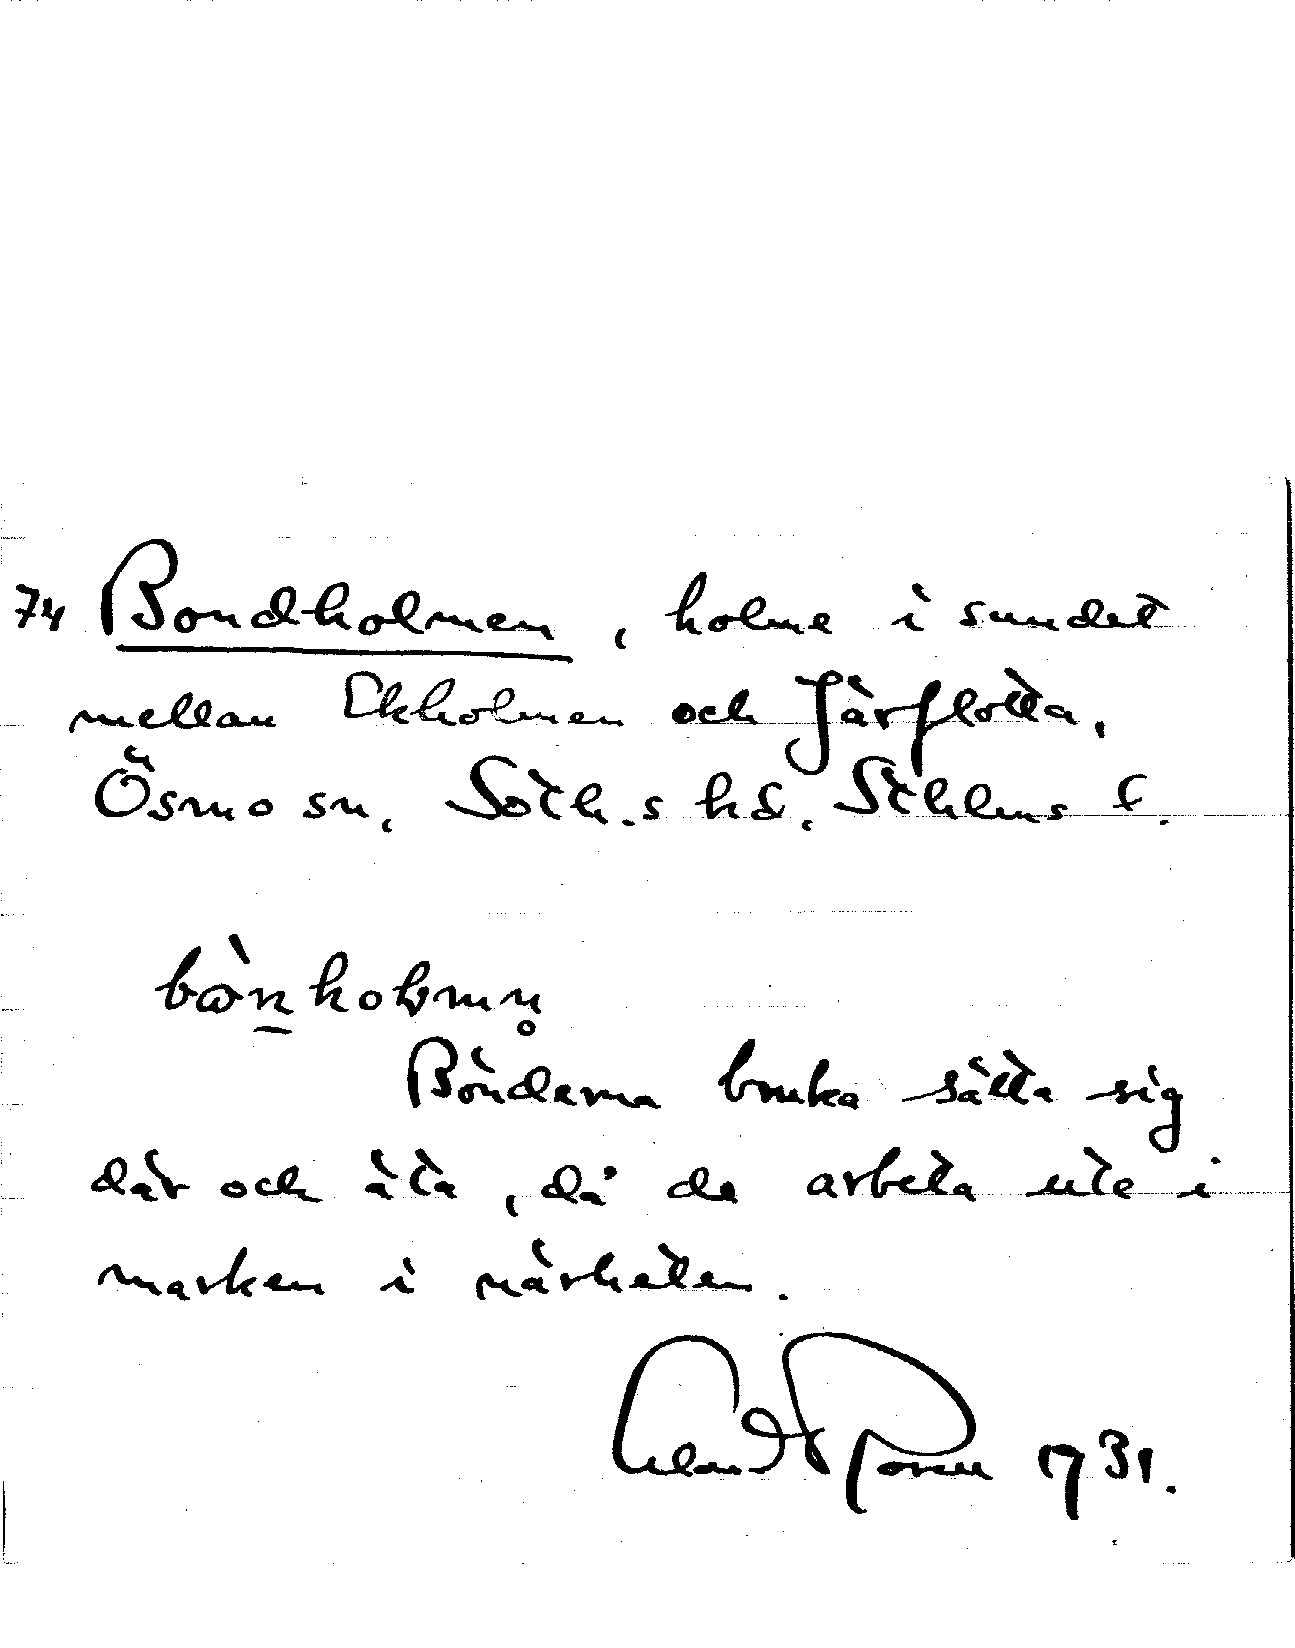 74 Bondholmen, holme i sundet
mellan Ekholmen och Järflotta,
Ösmo sn, Soth.s hd, Sthlms l.
bònholmn̥
Bönderna bruka sätta sig
där och äta, då de arbeta ute i
marken i närheten.
1931.